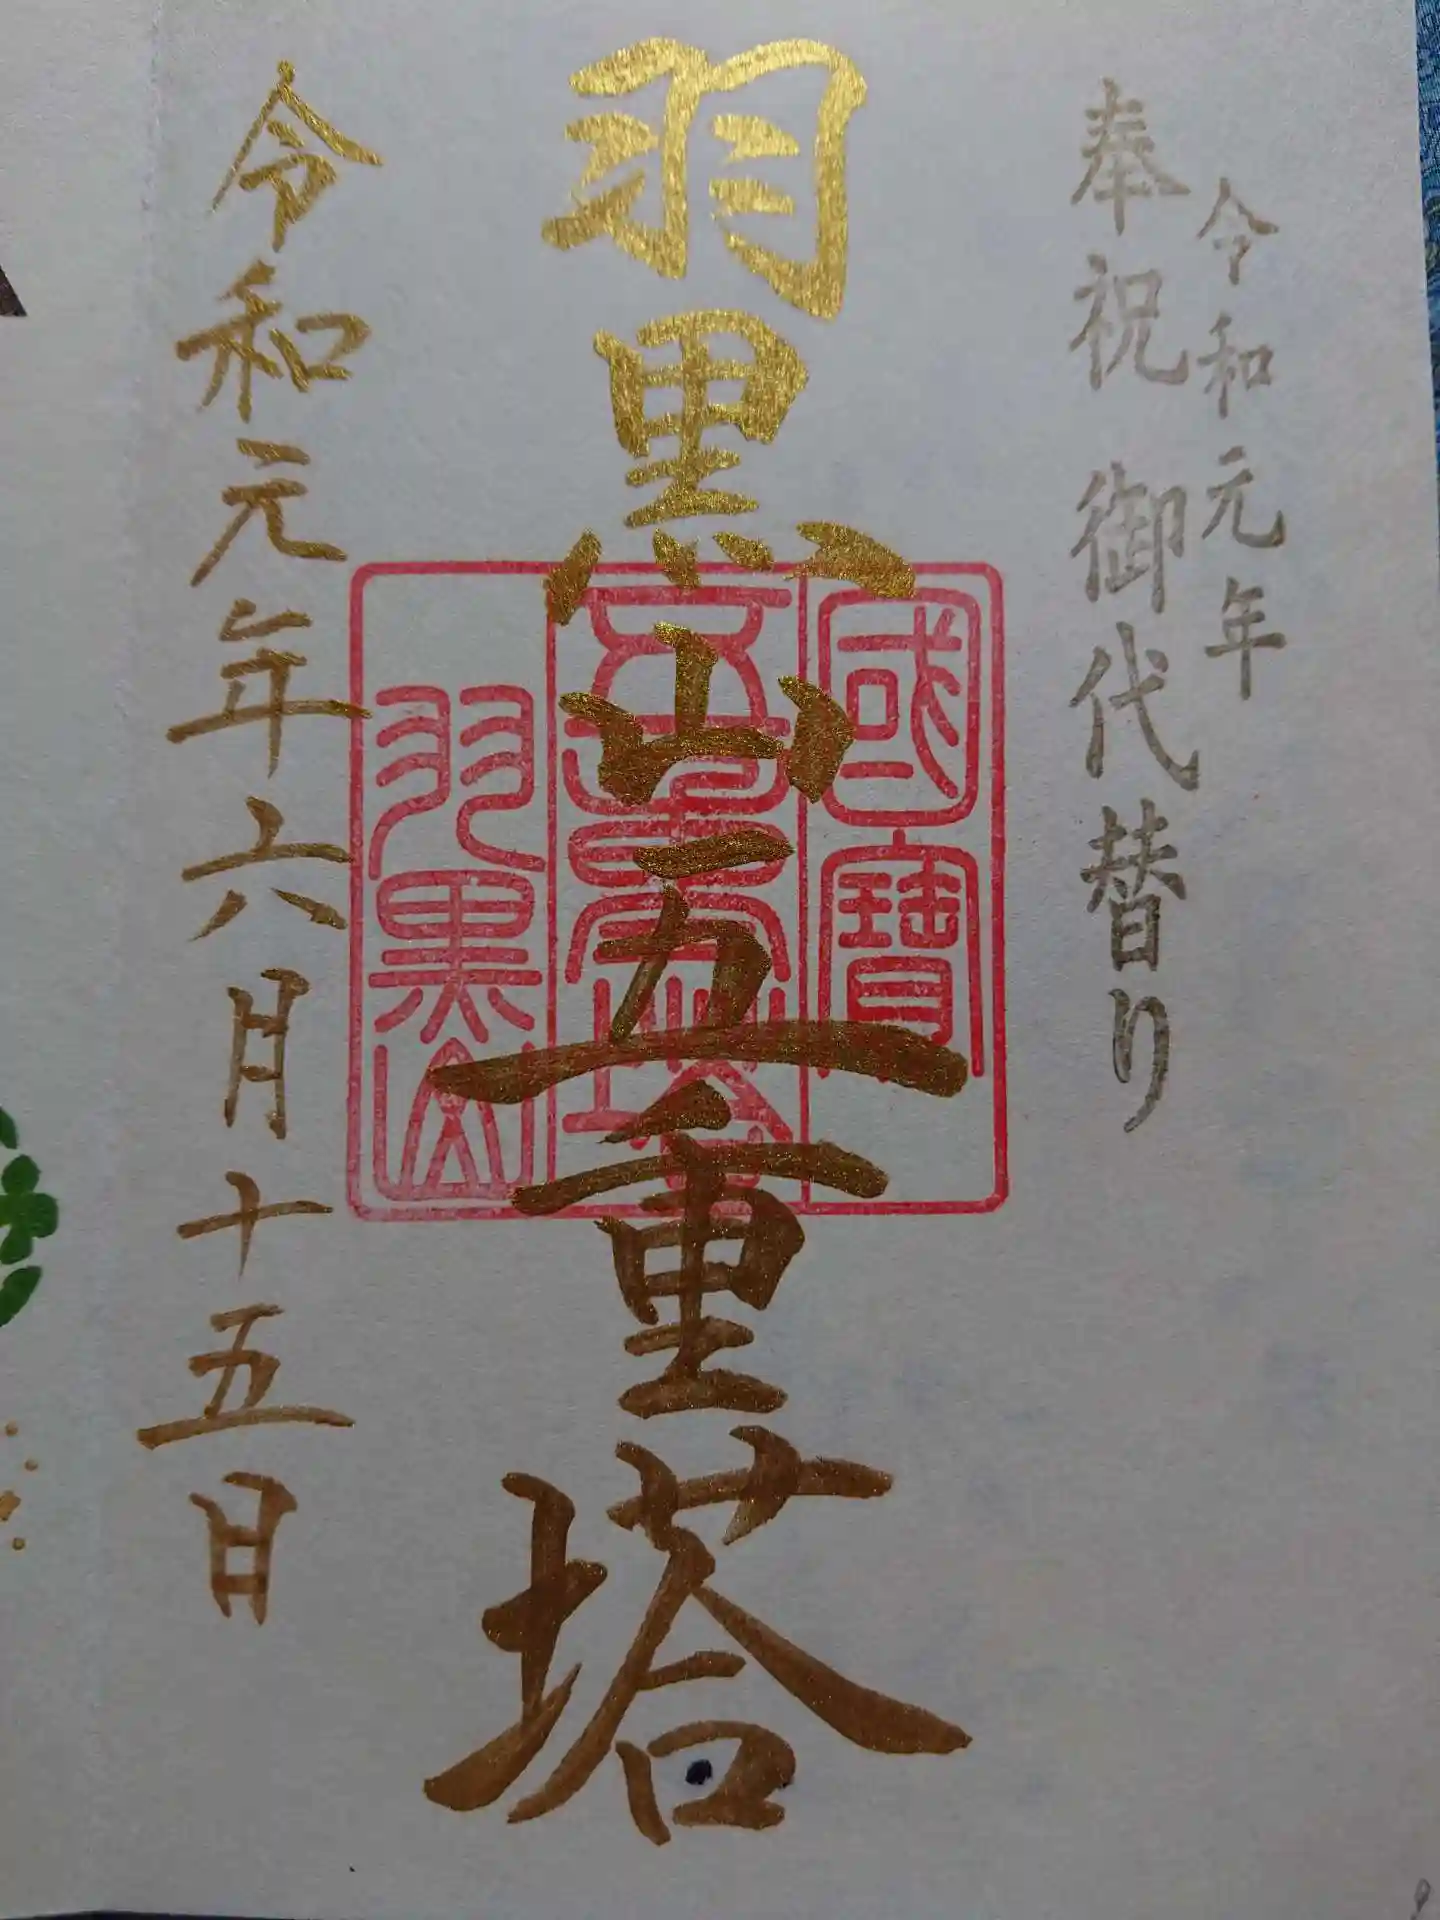 令和元年
奉祝 御代替り
羽黒山五重塔
國寶
五重塔
羽黒山
令和元年六月十五日